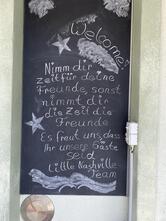 Welcome!
Nimm dir
Zeit für deine
Freunde, sonst
nimmt dir
die Zeit die
Freunde
Es freut uns, dass
Ihr unsere Gäste
seid
Little Nashville
Team